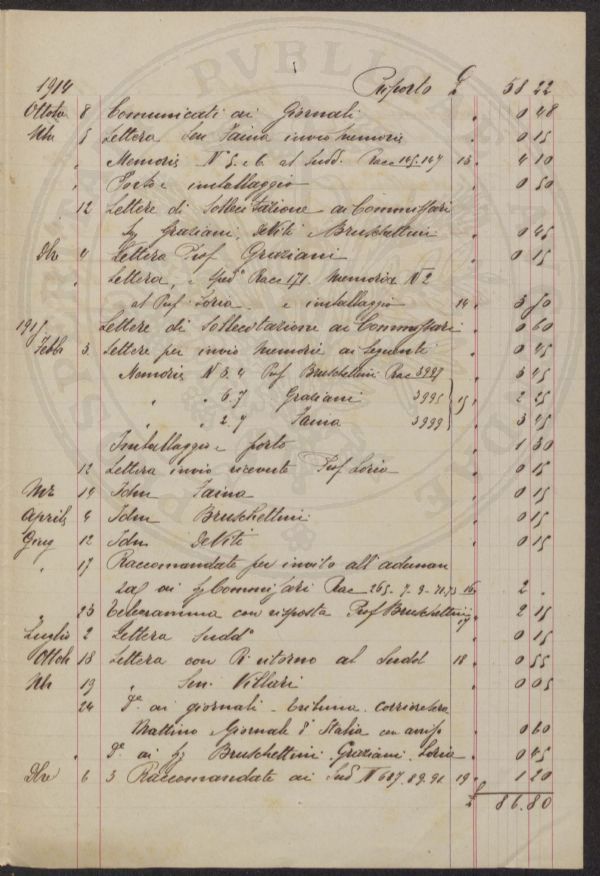 1914 Riporto £ 58 22
Ottobr 8 Comunicati ai Giornali " 0 48
Nbr 5 Lettera Sen Faina invio Memorie " 0 15
" Memorie N 5. e 6. al Sudd. Race 145.147 13 " 4 10
" Porto e imballaggio " 0 50
12 Lettere di Sollecitazione ai Commissari
Graziani, DeViti e Bruschettini " 0 45
Dbr 4 Lettera Prof Graziani " 0 15
" Lettera, e sped° Race 171. Memoria N 2
al Prof Loria e imballaggio 14 " 3 50
1915 Lettere di Sollecitazione ai Commissari " 0 60
Febb 3 Lettere per invio Memorie ai seguenti " 0 45
Memorie N 3.4 Prof Bruschettini Rac 3997 " 3 45
" " 6.7 Graziani 3995 15 " 2 25
" " 2.7 Faina 3999 " 3 45
Imballaggio e porto " 1 30
12 Lettera invio ricevute Prof Loria " 0 15
Mz 19 Idm Faina " 0 15
Aprile 4 Idm Bruschettini " 0 15
Giug 12 Idm DeViti " 0 15
" 17 Raccomandate per invito all'adunan
za ai Commissari Rac 265. 7. 9- 71.73 16 " 2 .
" 23 Telegramma con risposta Prof Bruschettini 17 " 2 15
Luglio 2 Lettera Sudd° " 0 15
Ottob 18 Lettera con Ritorno al Sudd 18 " 0 55
Nb 19 " Sen. Villari " 0 05
24 D° ai giornali - Tribuna. Corriere Sera
Mattino Giornale d'Italia con avviso " 0 60
" D° ai Bruschettini. Graziani. Loria " 0 45
Dbre 6 3 Raccomandate ai Sud N 687.89.91 19 " 1 20
£ 86.80